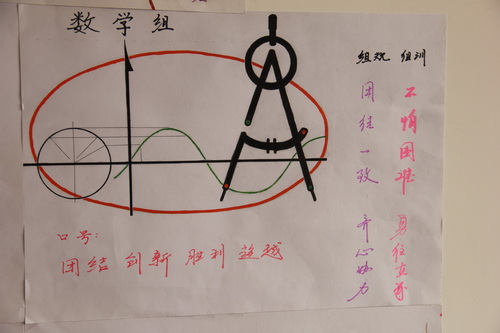 数学组
组观 组训
团结一致 齐心协力
不怕困难 勇往直前
口号:
团结 创新 胜利 超越